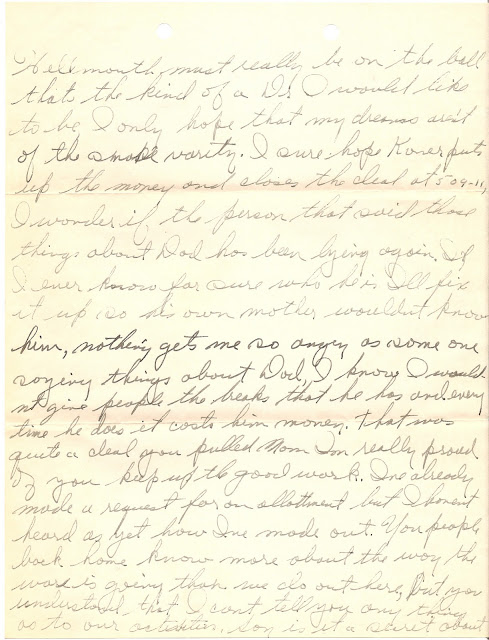 must really be on the ball
thats the kind of a I would like
to be, I only hope that my dreams arent
of the smoke varity. I sure hope puts
up the money and closes the deal at 509-11,
I wonder if the person that said those
things about Dad has been lying again, If
I ever know for sure who he is Ill fix
it up so his own mother wouldnt know
him, nothing gets me so angry as some one
saying things about Dad, I know I would
nt give people the breaks that he has and every
time he does it costs him money. That was
quite a deal you pulled Mom Im really proud
of you keep up the good work. Ive already
made a request for an allottment but I havent
heard as yet how Ive made out. You people
back home know more about the way the
ware is going than we do out here, But you
understand that I cant tell you any thing
as to our activities. Say is it a secret about